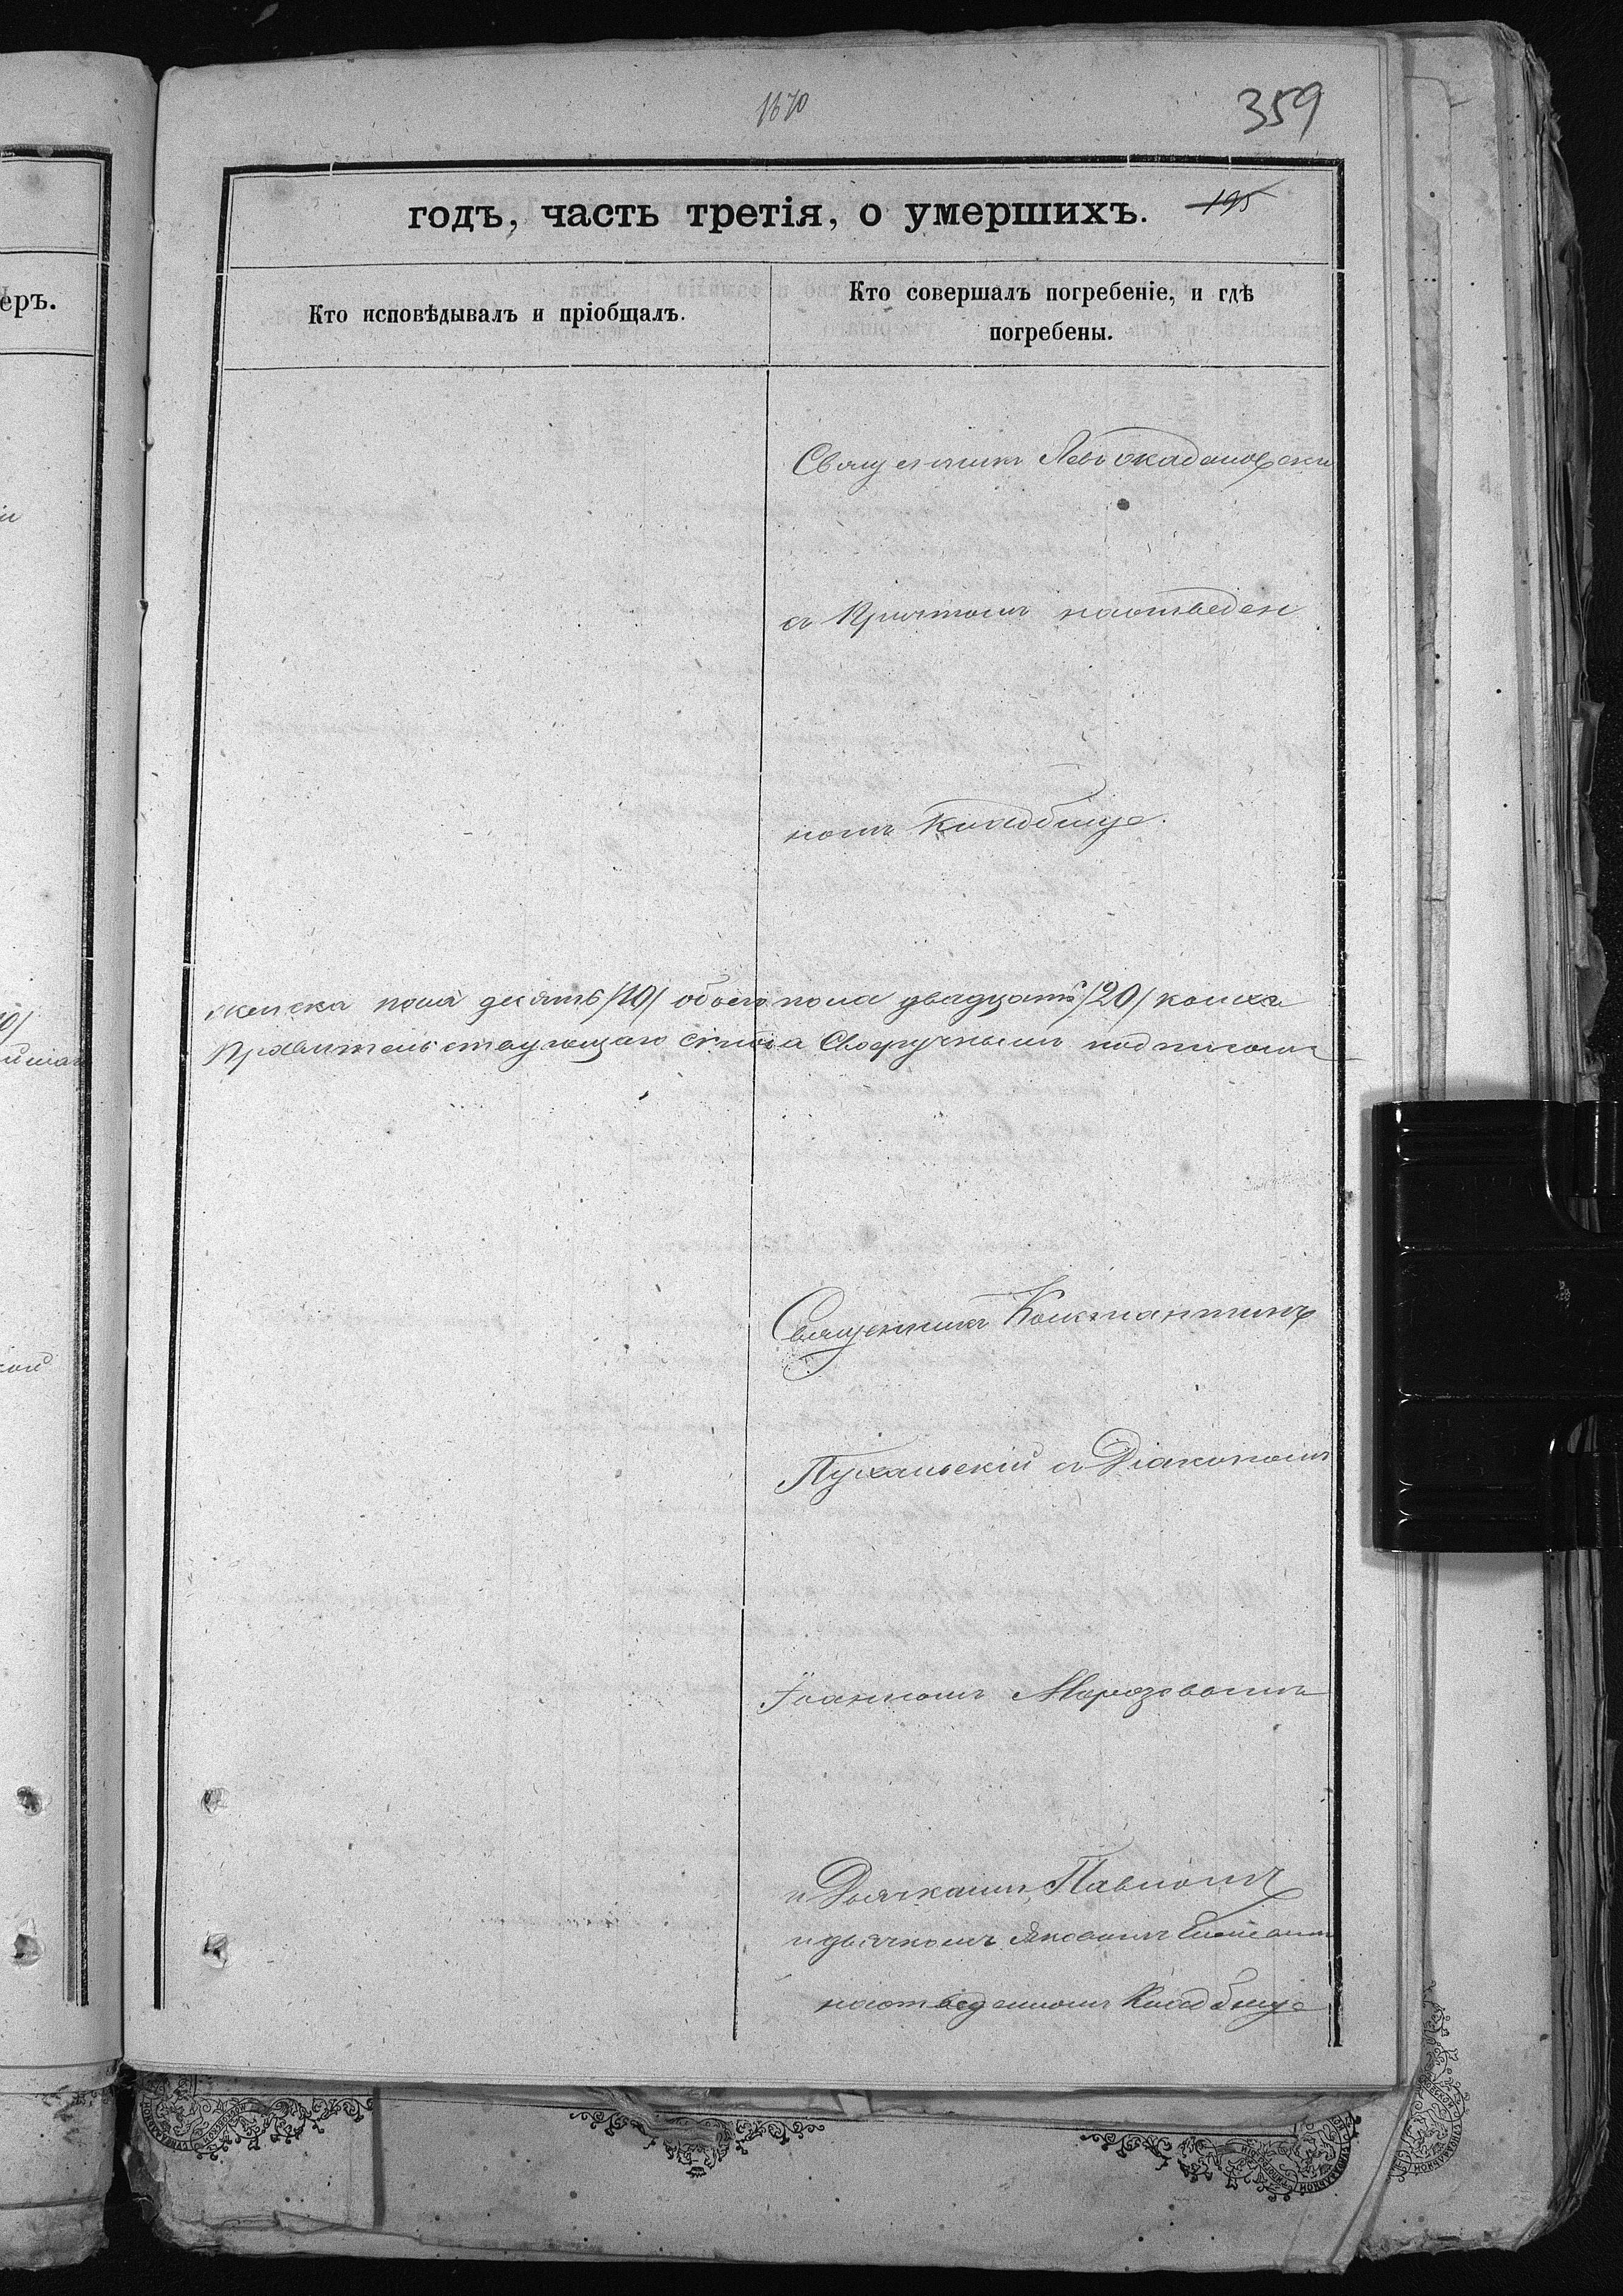 1870
359
годъ, часть третія, о умершихъ. 195
еръ.
Кто исповѣдывалъ и пріобщалъ.
Кто совершалъ погребеніе, и гдѣ
погребены.
Священникъ Левъ
съ Причтомъ наотведен
номъ Кладбище.
женска пола десять /10/ обоего пола двадцать /20/
Своеручнымъ подписомъ
Священникъ Константинъ
Пухальскій съ Діакономъ
Іоанномъ Морозовымъ
и Дьячкомъ Павломъ
и дьячкомъ Яковомъ
наотведенномъ Кладбище